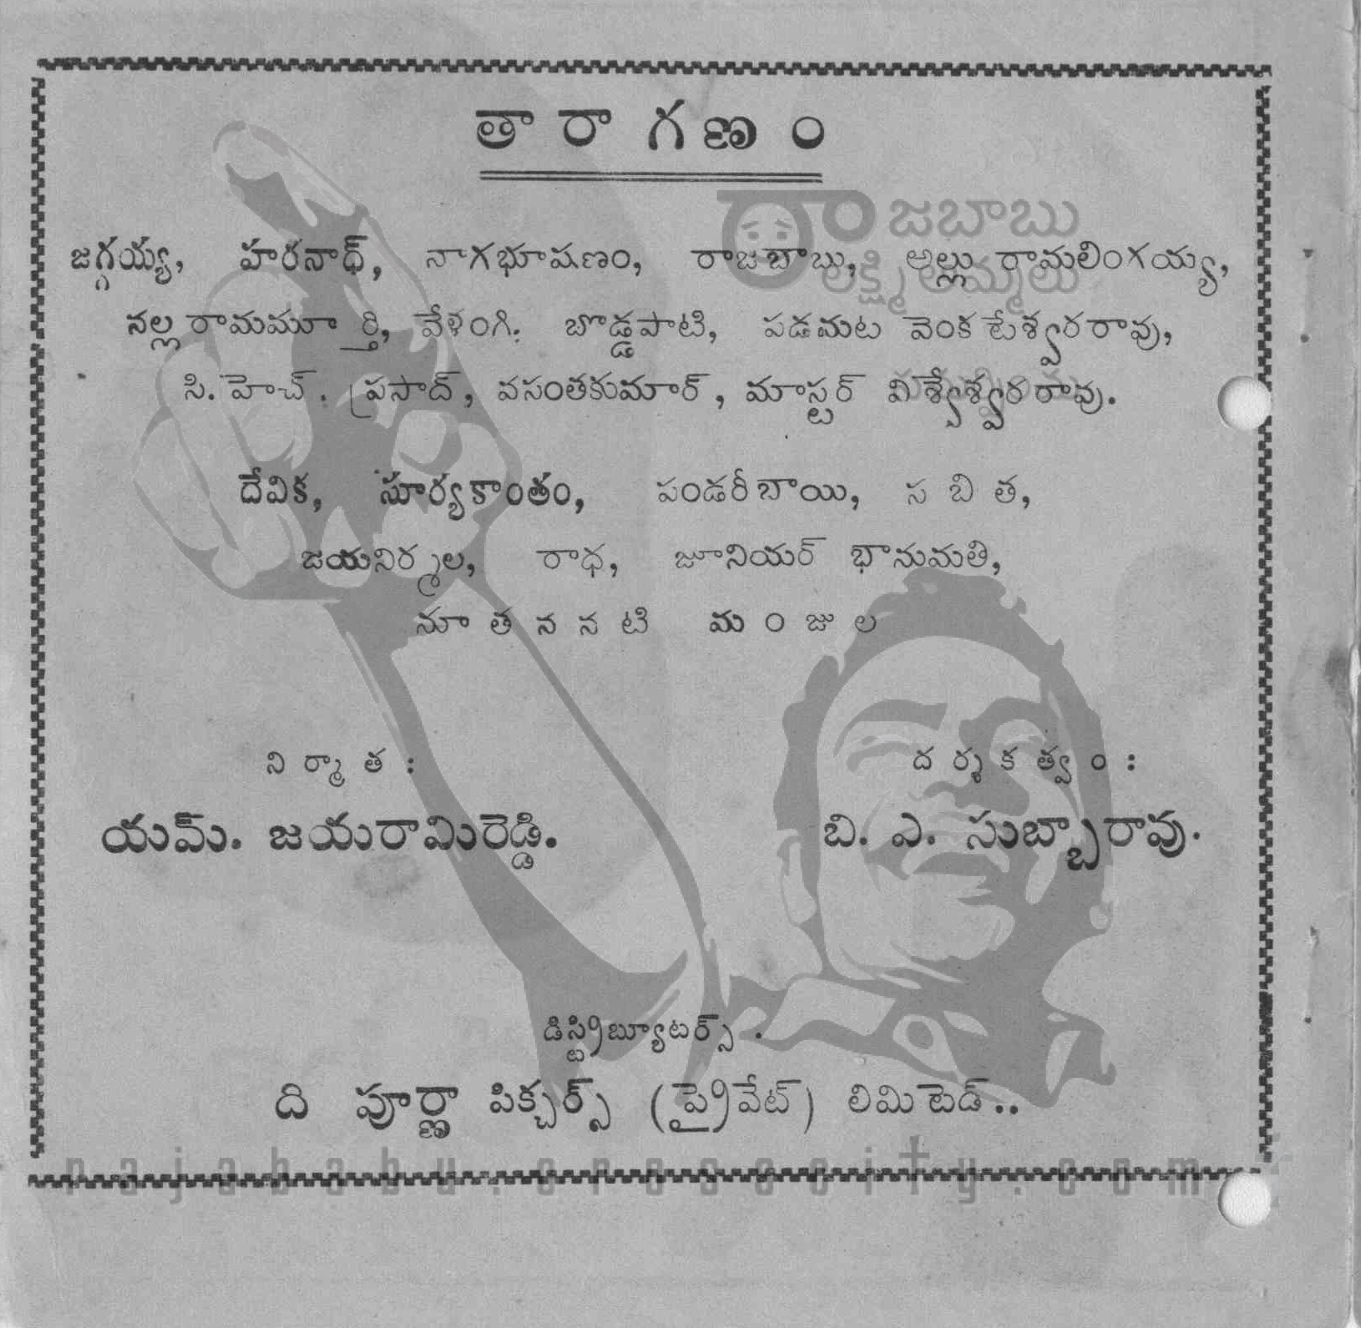 తారాగణం
రాజబాబు
జగ్గయ్య, హరనాధ్, నాగభూషణం, రాజబాబు, అల్లు రామలింగయ్య,
లక్ష్మీ అమ్మలు
నల్ల రామమూర్తి, వేళంగి. బొడ్డపాటి, పదమట వెంకటేశ్వరరావు,
సి. హెచ్. ప్రసాద్, వసంతకుమార్, మాస్టర్ విశ్వేశ్వరరావు.
దేవిక, సూర్యకాంతం, పండరీబాయి, సబిత,
జయనిర్మల, రాధ, జూనియర్ భానుమతి,
నూతననటి మంజుల
నిర్మాత : దర్శకత్వం :
యమ్. జయరామిరెడ్డి. బి. ఎ. సుబ్బారావు.
డిస్ట్రిబ్యూటర్స్.
ది పూర్ణా పిక్చర్స్ (ప్రైవేట్) లిమిటెడ్..